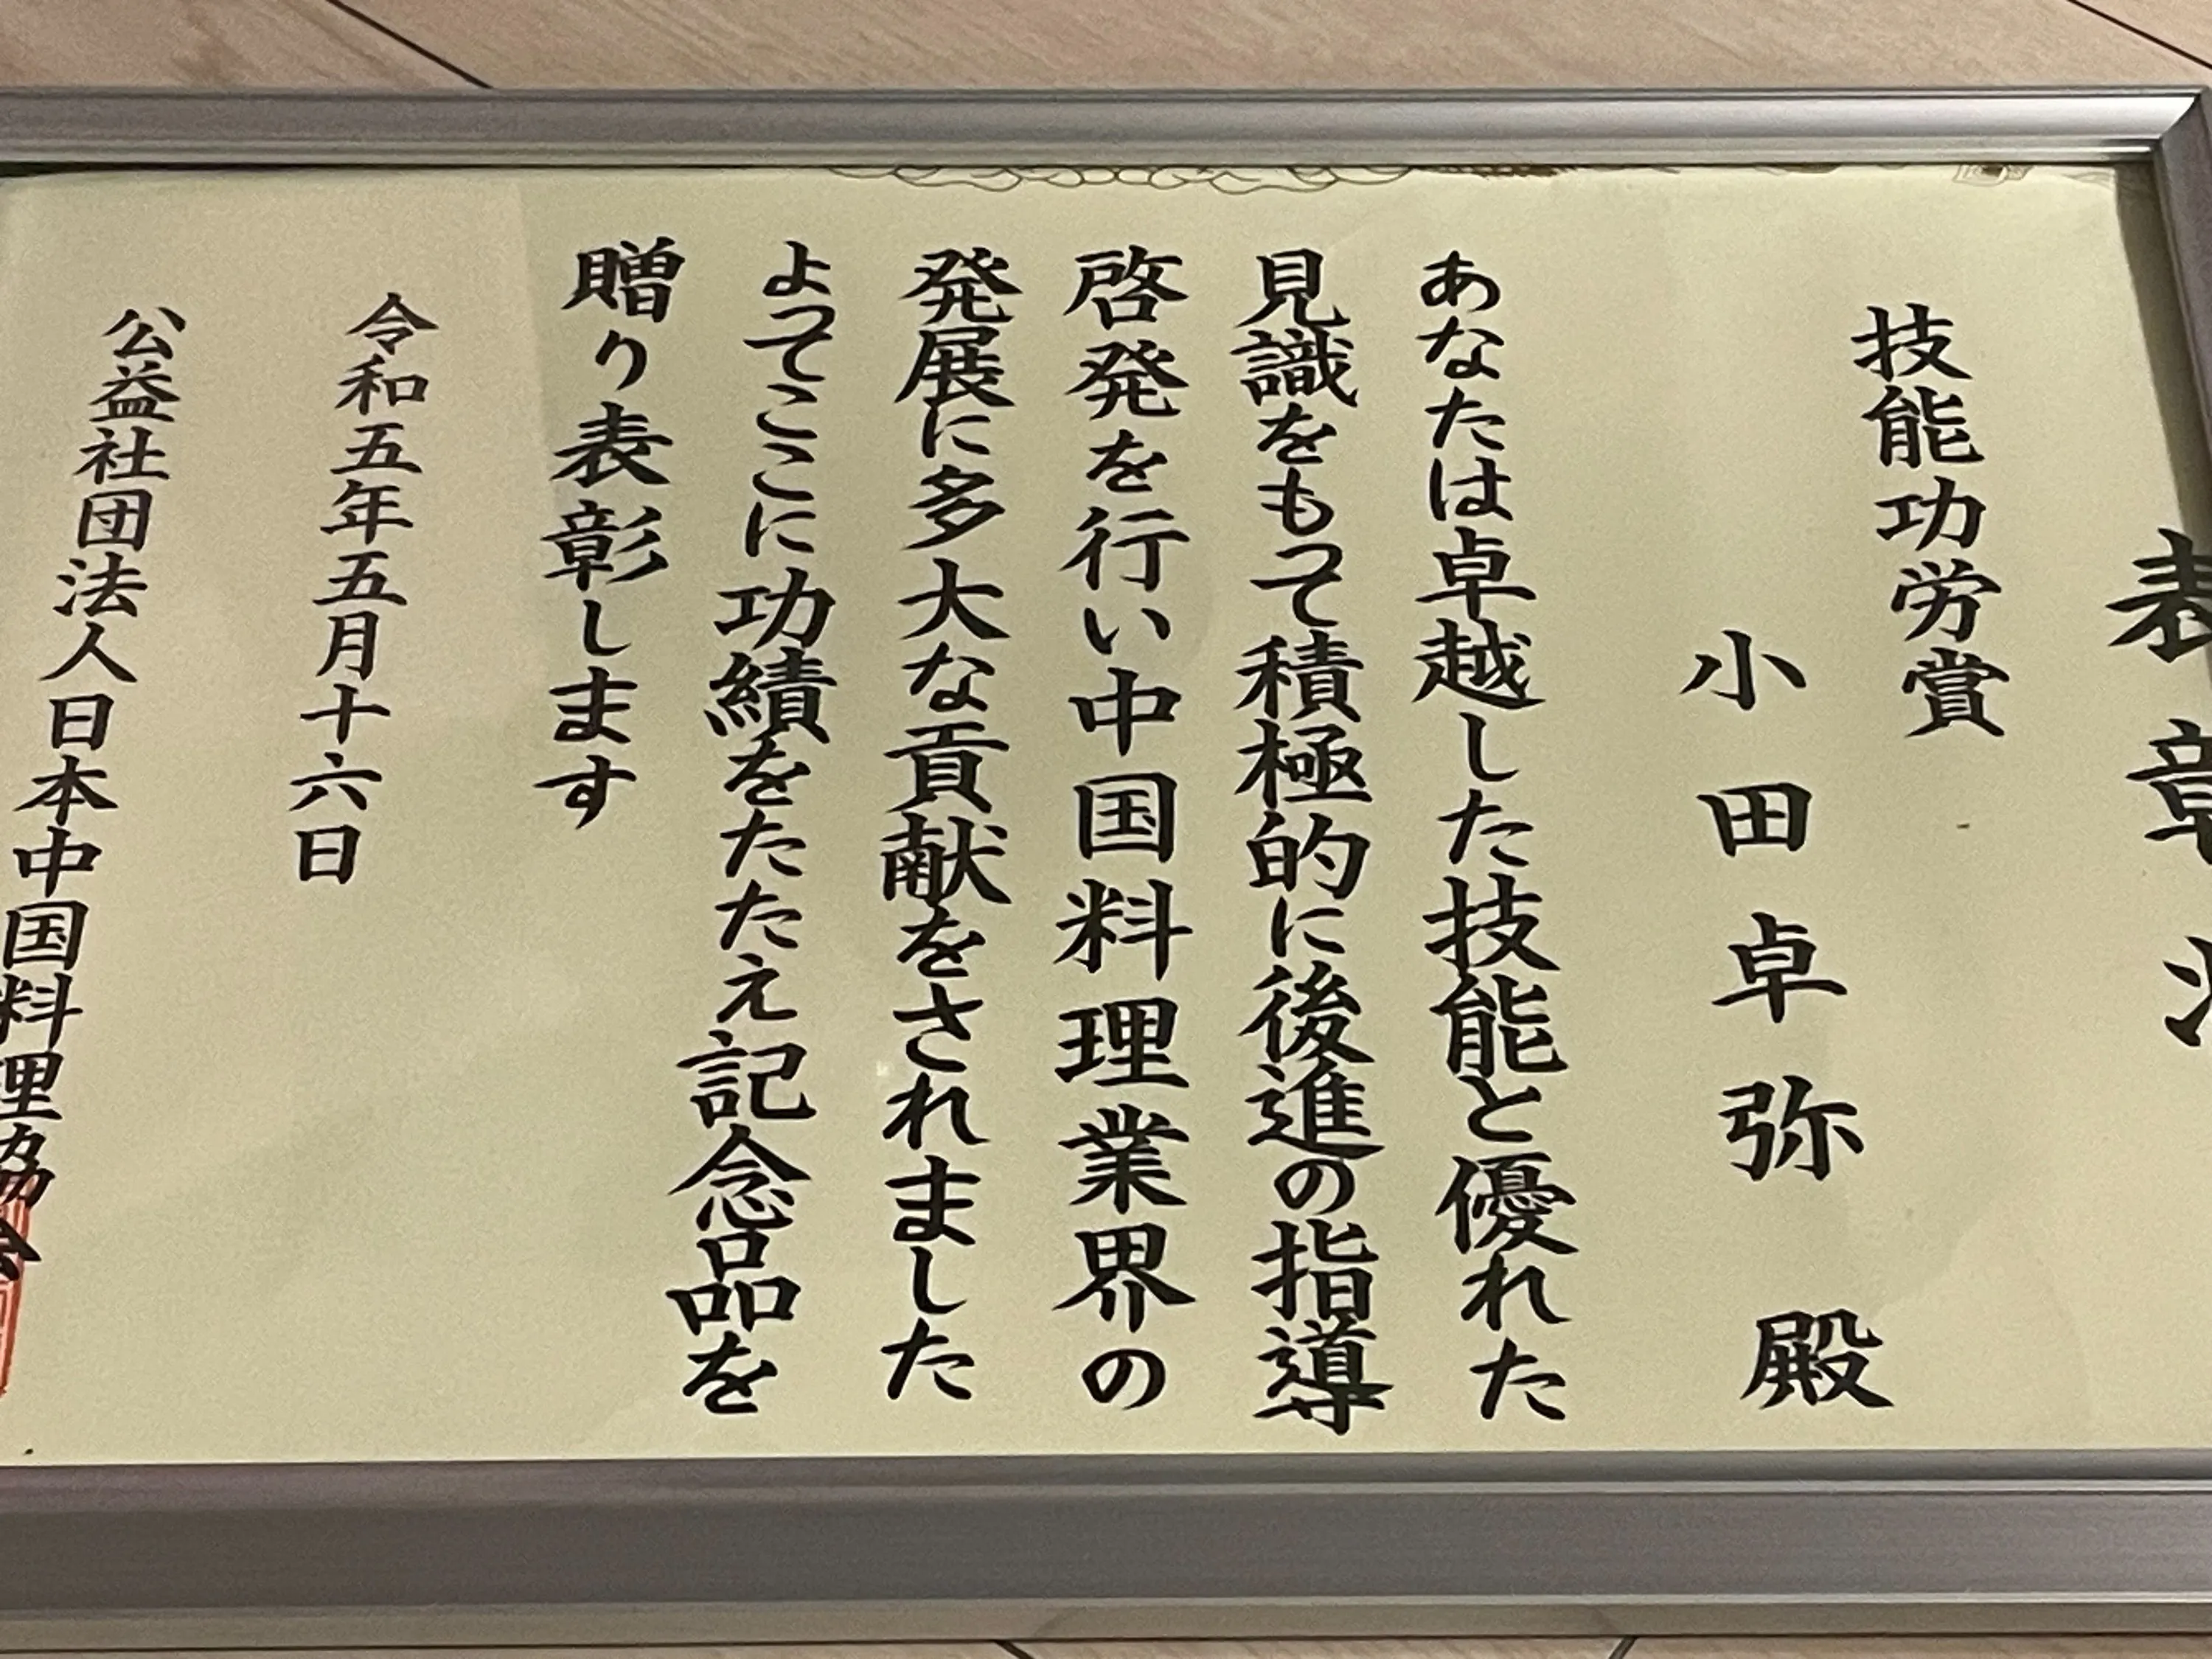 表章状
技能功労賞
小田卓弥 殿
あなたは卓越した技能と優れた
見識をもって積極的に後進の指導
啓発を行い中国料理業界の
発展に多大な貢献をされました
よってここに功績をたたえ記念品を
贈り表彰します
令和五年五月十六日
公益社団法人日本中国料理協会